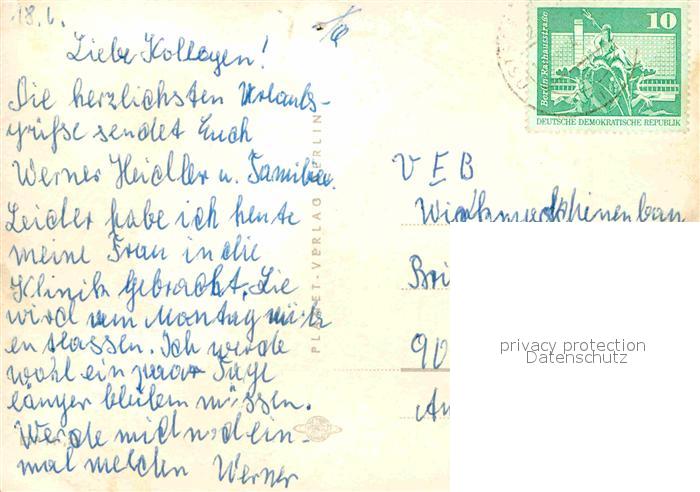 18.6.
Liebe Kollegen!
Die herzlichsten Urlaubs-
grüße sendet Euch
Werner Heidler u. Familie.
Leider habe ich heute
meine Frau in die
Klinik gebracht. Sie
wird am Montag
entlassen. Ich werde
wohl ein paar Tage
länger bleiben müssen.
Werde mich noch ein-
mal melden Werner
PLANET-VERLAG BERLIN
Berlin, Rathausstraße
10
DEUTSCHE DEMOKRATISCHE REPUBLIK
VEB
Wirkmaschinenbau
Bri
90
privacy protection
Datenschutz